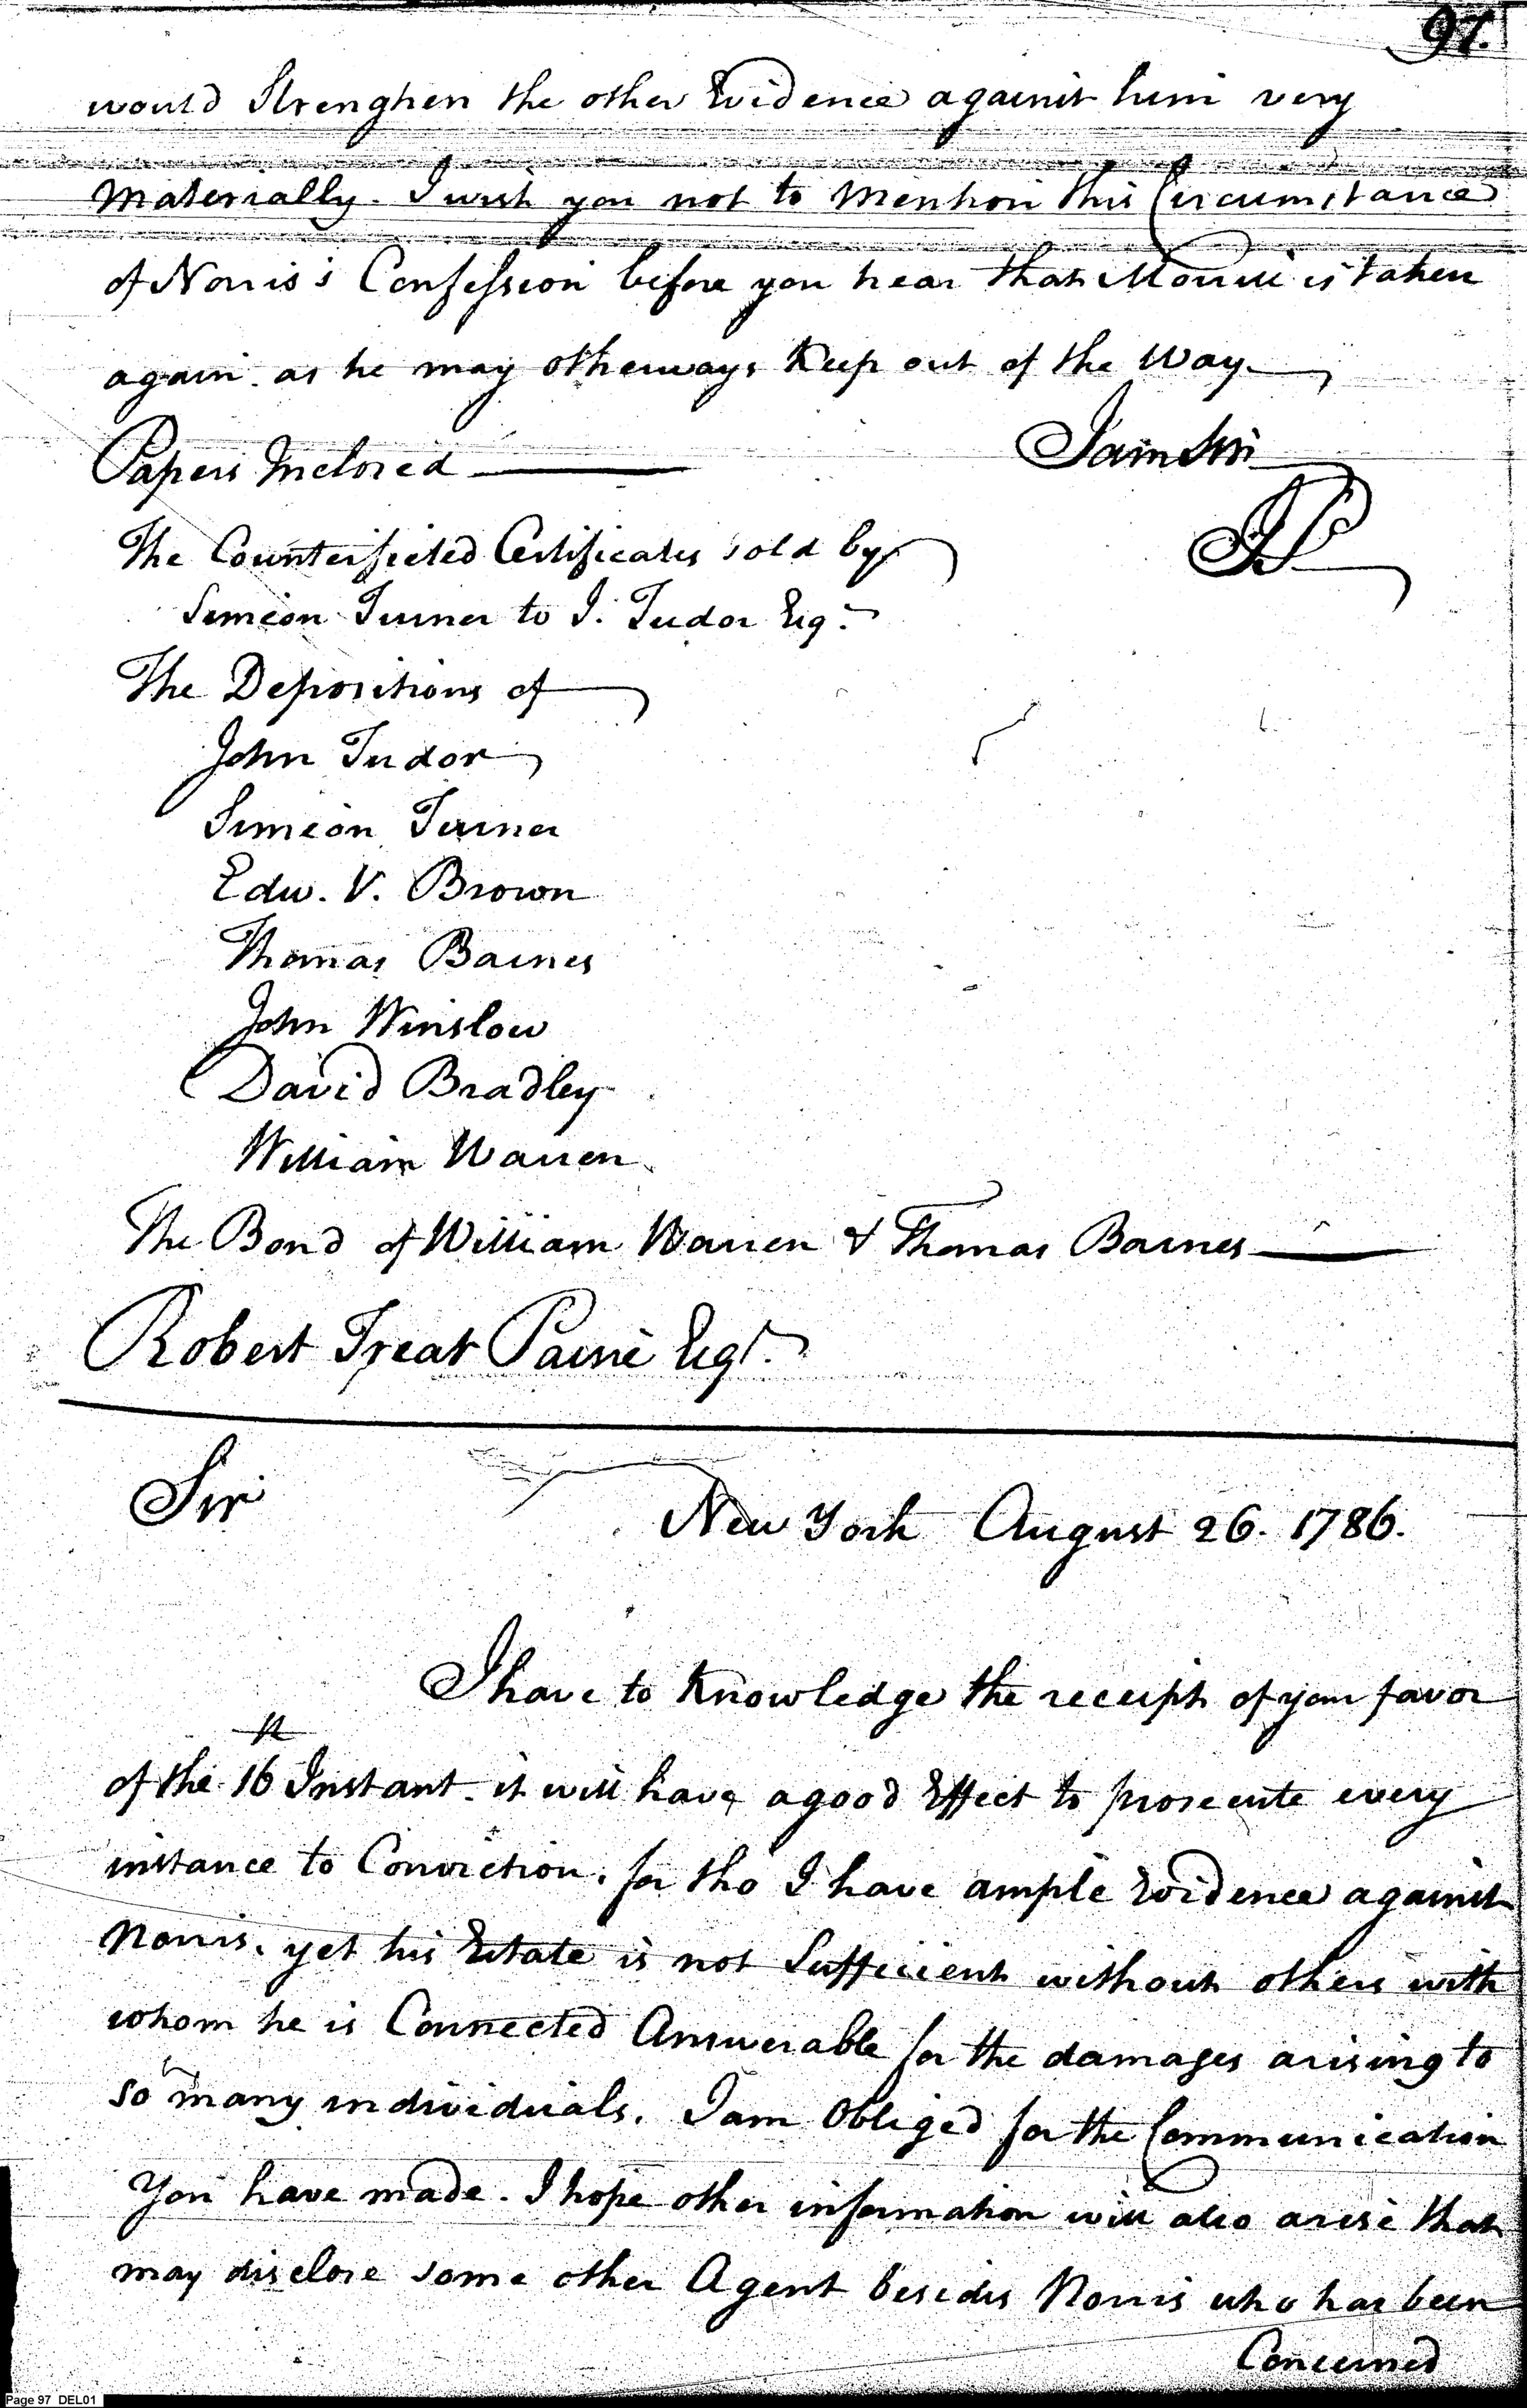 97.
would Strenghen the other Evidence against him very
Materially. I wish you not to Mention this Circumstance
of Norris's Confession before you hear that Morris is taken
again. as he may otherways Keep out of the Way.
Papers Inclosed
I am Sir
The Counterfieted Certificates sold by
JP
Simeon Turner to J. Tudor Esq.
The Depositions of
John Tudor
Simeon Turner
Edw. V. Brown
Thomas Barnes
John Winslow
David Bradley
William Warren
The Bond of William Warren & Thomas Barnes
Robert Treat Paine Esqr.
Sir
New York August 26. 1786.
I have to Knowledge the receipt of your favor
of the 16th Instant. it will have a good Effect to prosecute every
instance to Conviction. for tho I have ample Evidence against
Norris. yet his Estate is not Sufficient without others with
whom he is Connected Answerable for the damages arising to
so many individuals. I am Obliged for the Communication
You have made. I hope other information will also arise that
may disclose some other Agent besides Norris who has been
Concerned
Page 97 DEL01